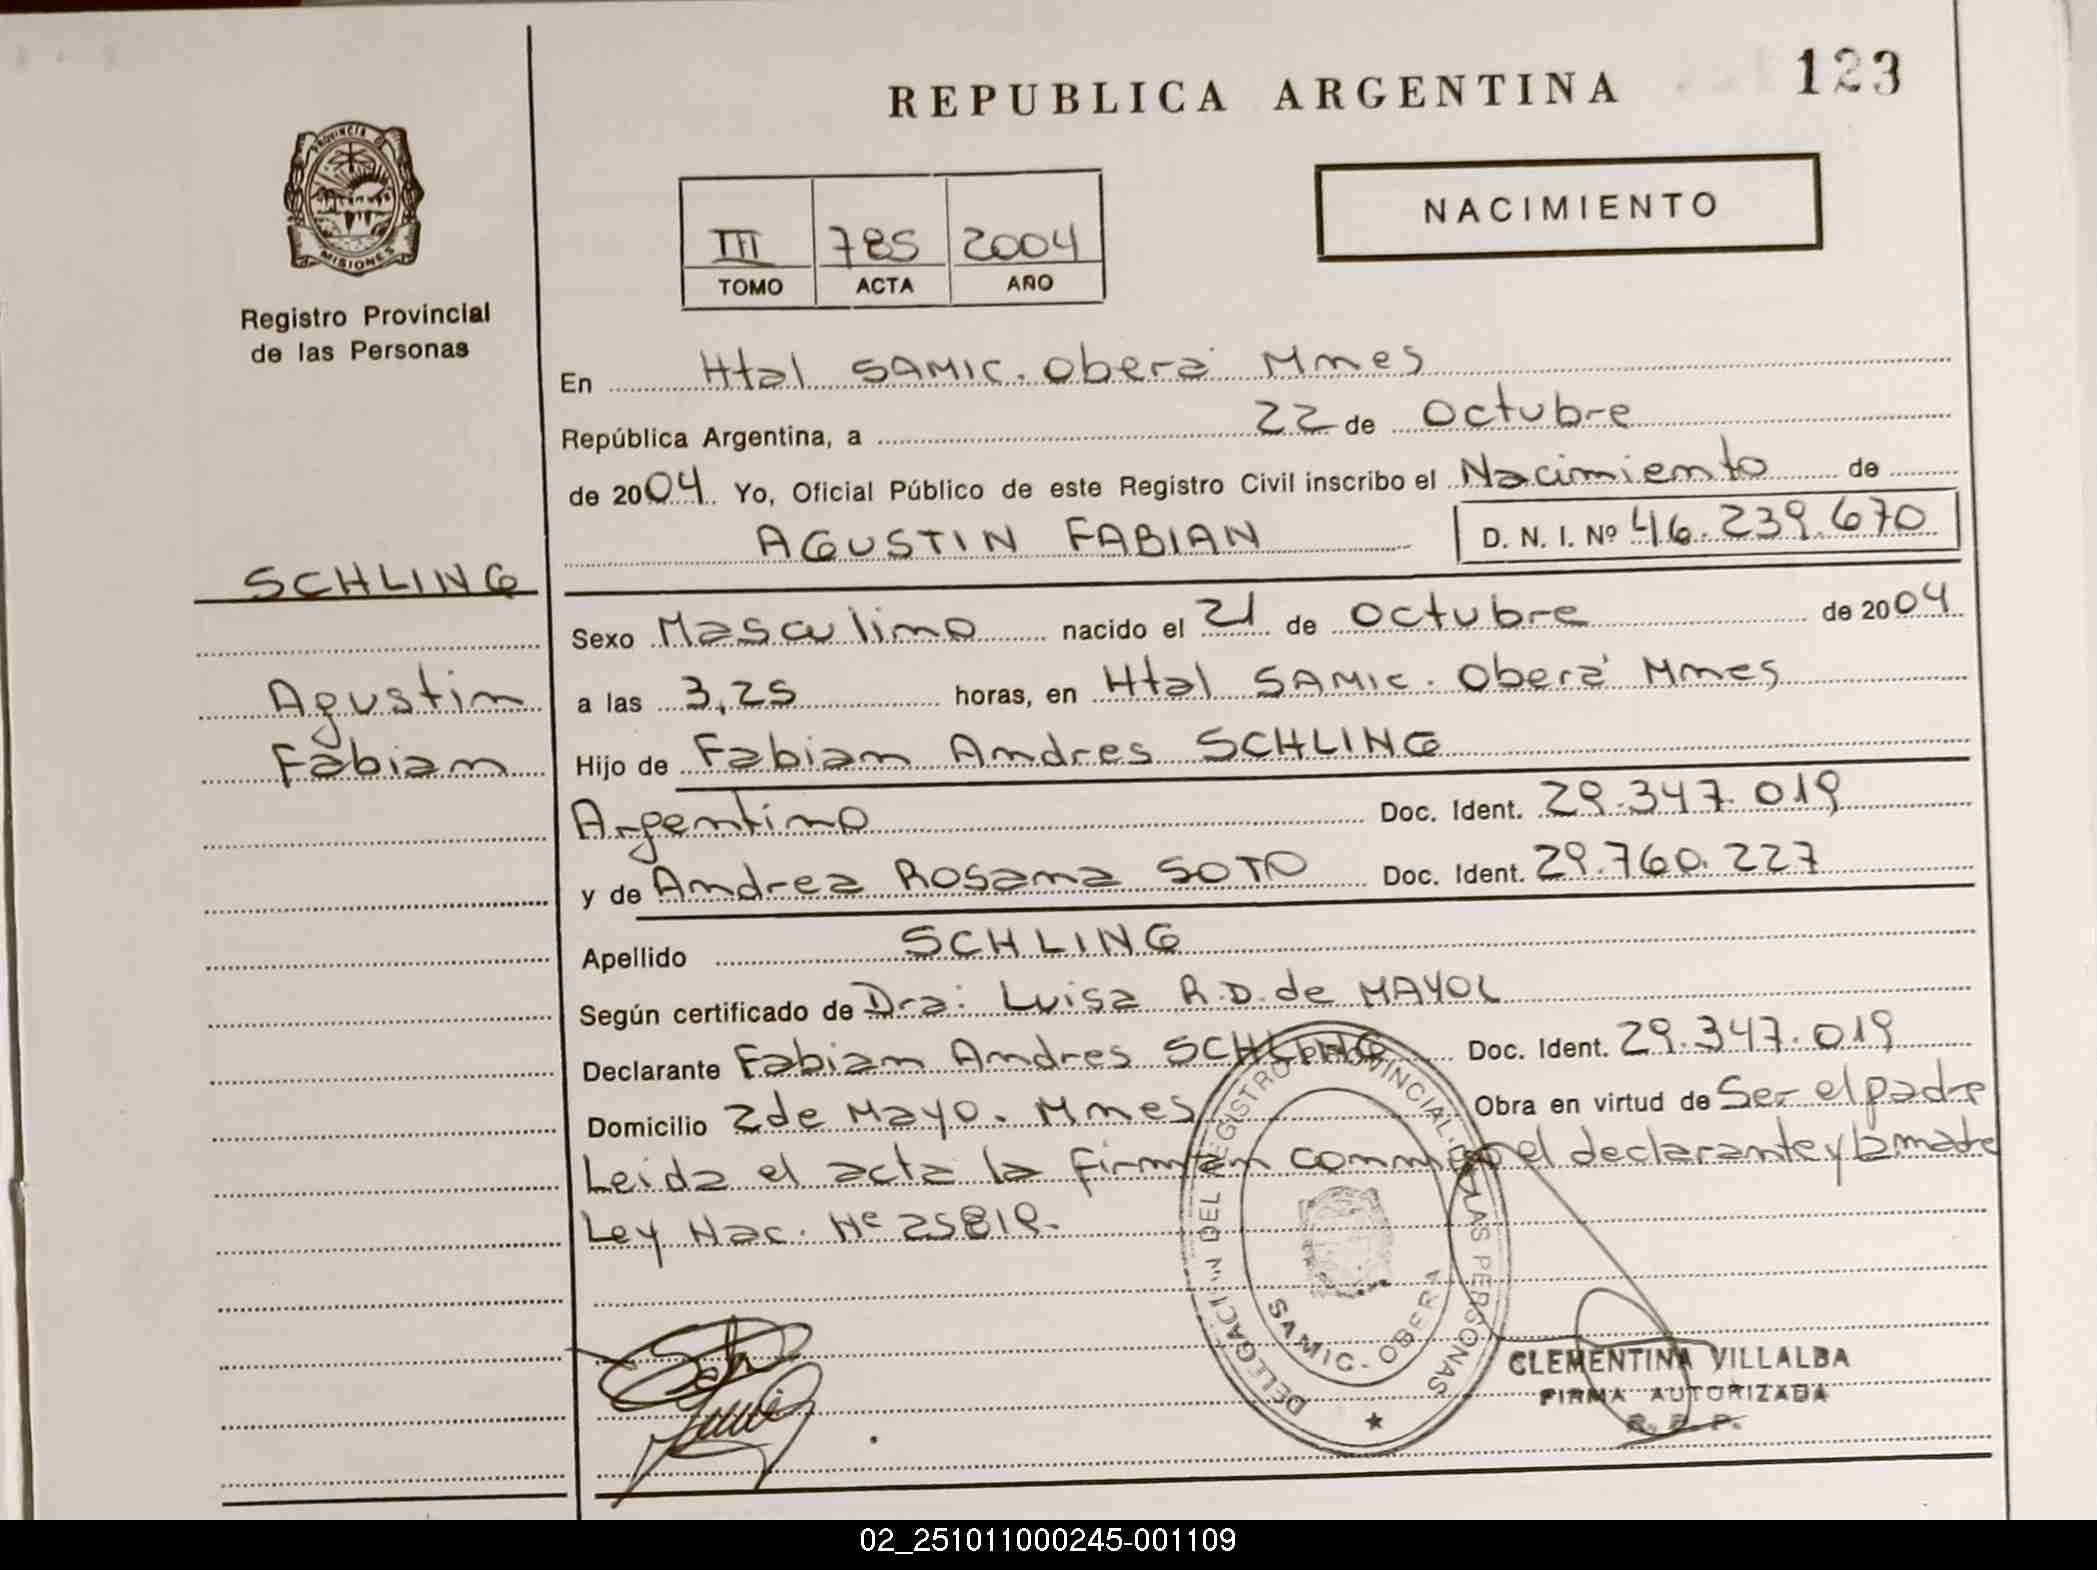 REPUBLICA ARGENTINA
123
PROVINCIA DE
MISIONES
Registro Provincial
de las Personas
III 785 2004
TOMO ACTA AÑO
NACIMIENTO
En Htal SAMIC. Oberá Mnes
República Argentina, a 22 de Octubre
de 2004. Yo, Oficial Público de este Registro Civil inscribo el Nacimiento de
AGUSTIN FABIAN D. N. I. Nº 46.239.670
SCHLING
Agustin
Fabian
Sexo Masculino nacido el 21 de Octubre de 2004
a las 3,25 horas, en Htal SAMIC. Oberá Mnes
Hijo de Fabian Andres SCHLING
Argentino Doc. Ident. 29.347.019
y de Andrea Rosana SOTO Doc. Ident. 29.760.227
Apellido SCHLING
Según certificado de Dra: Luisa R.D. de MAYOL
Declarante Fabian Andres SCHLING Doc. Ident. 29.347.019
Domicilio 2 de Mayo. Mnes Obra en virtud de Ser el padre
Leida el acta la firman conmigo el declarante y la madre
Ley Nac. Nº 25819.
DELEGACION DEL REGISTRO PROVINCIAL DE LAS PERSONAS
SAMIC - OBERA
CLEMENTINA VILLALBA
FIRMA AUTORIZADA
R. P. P.
02_251011000245-001109